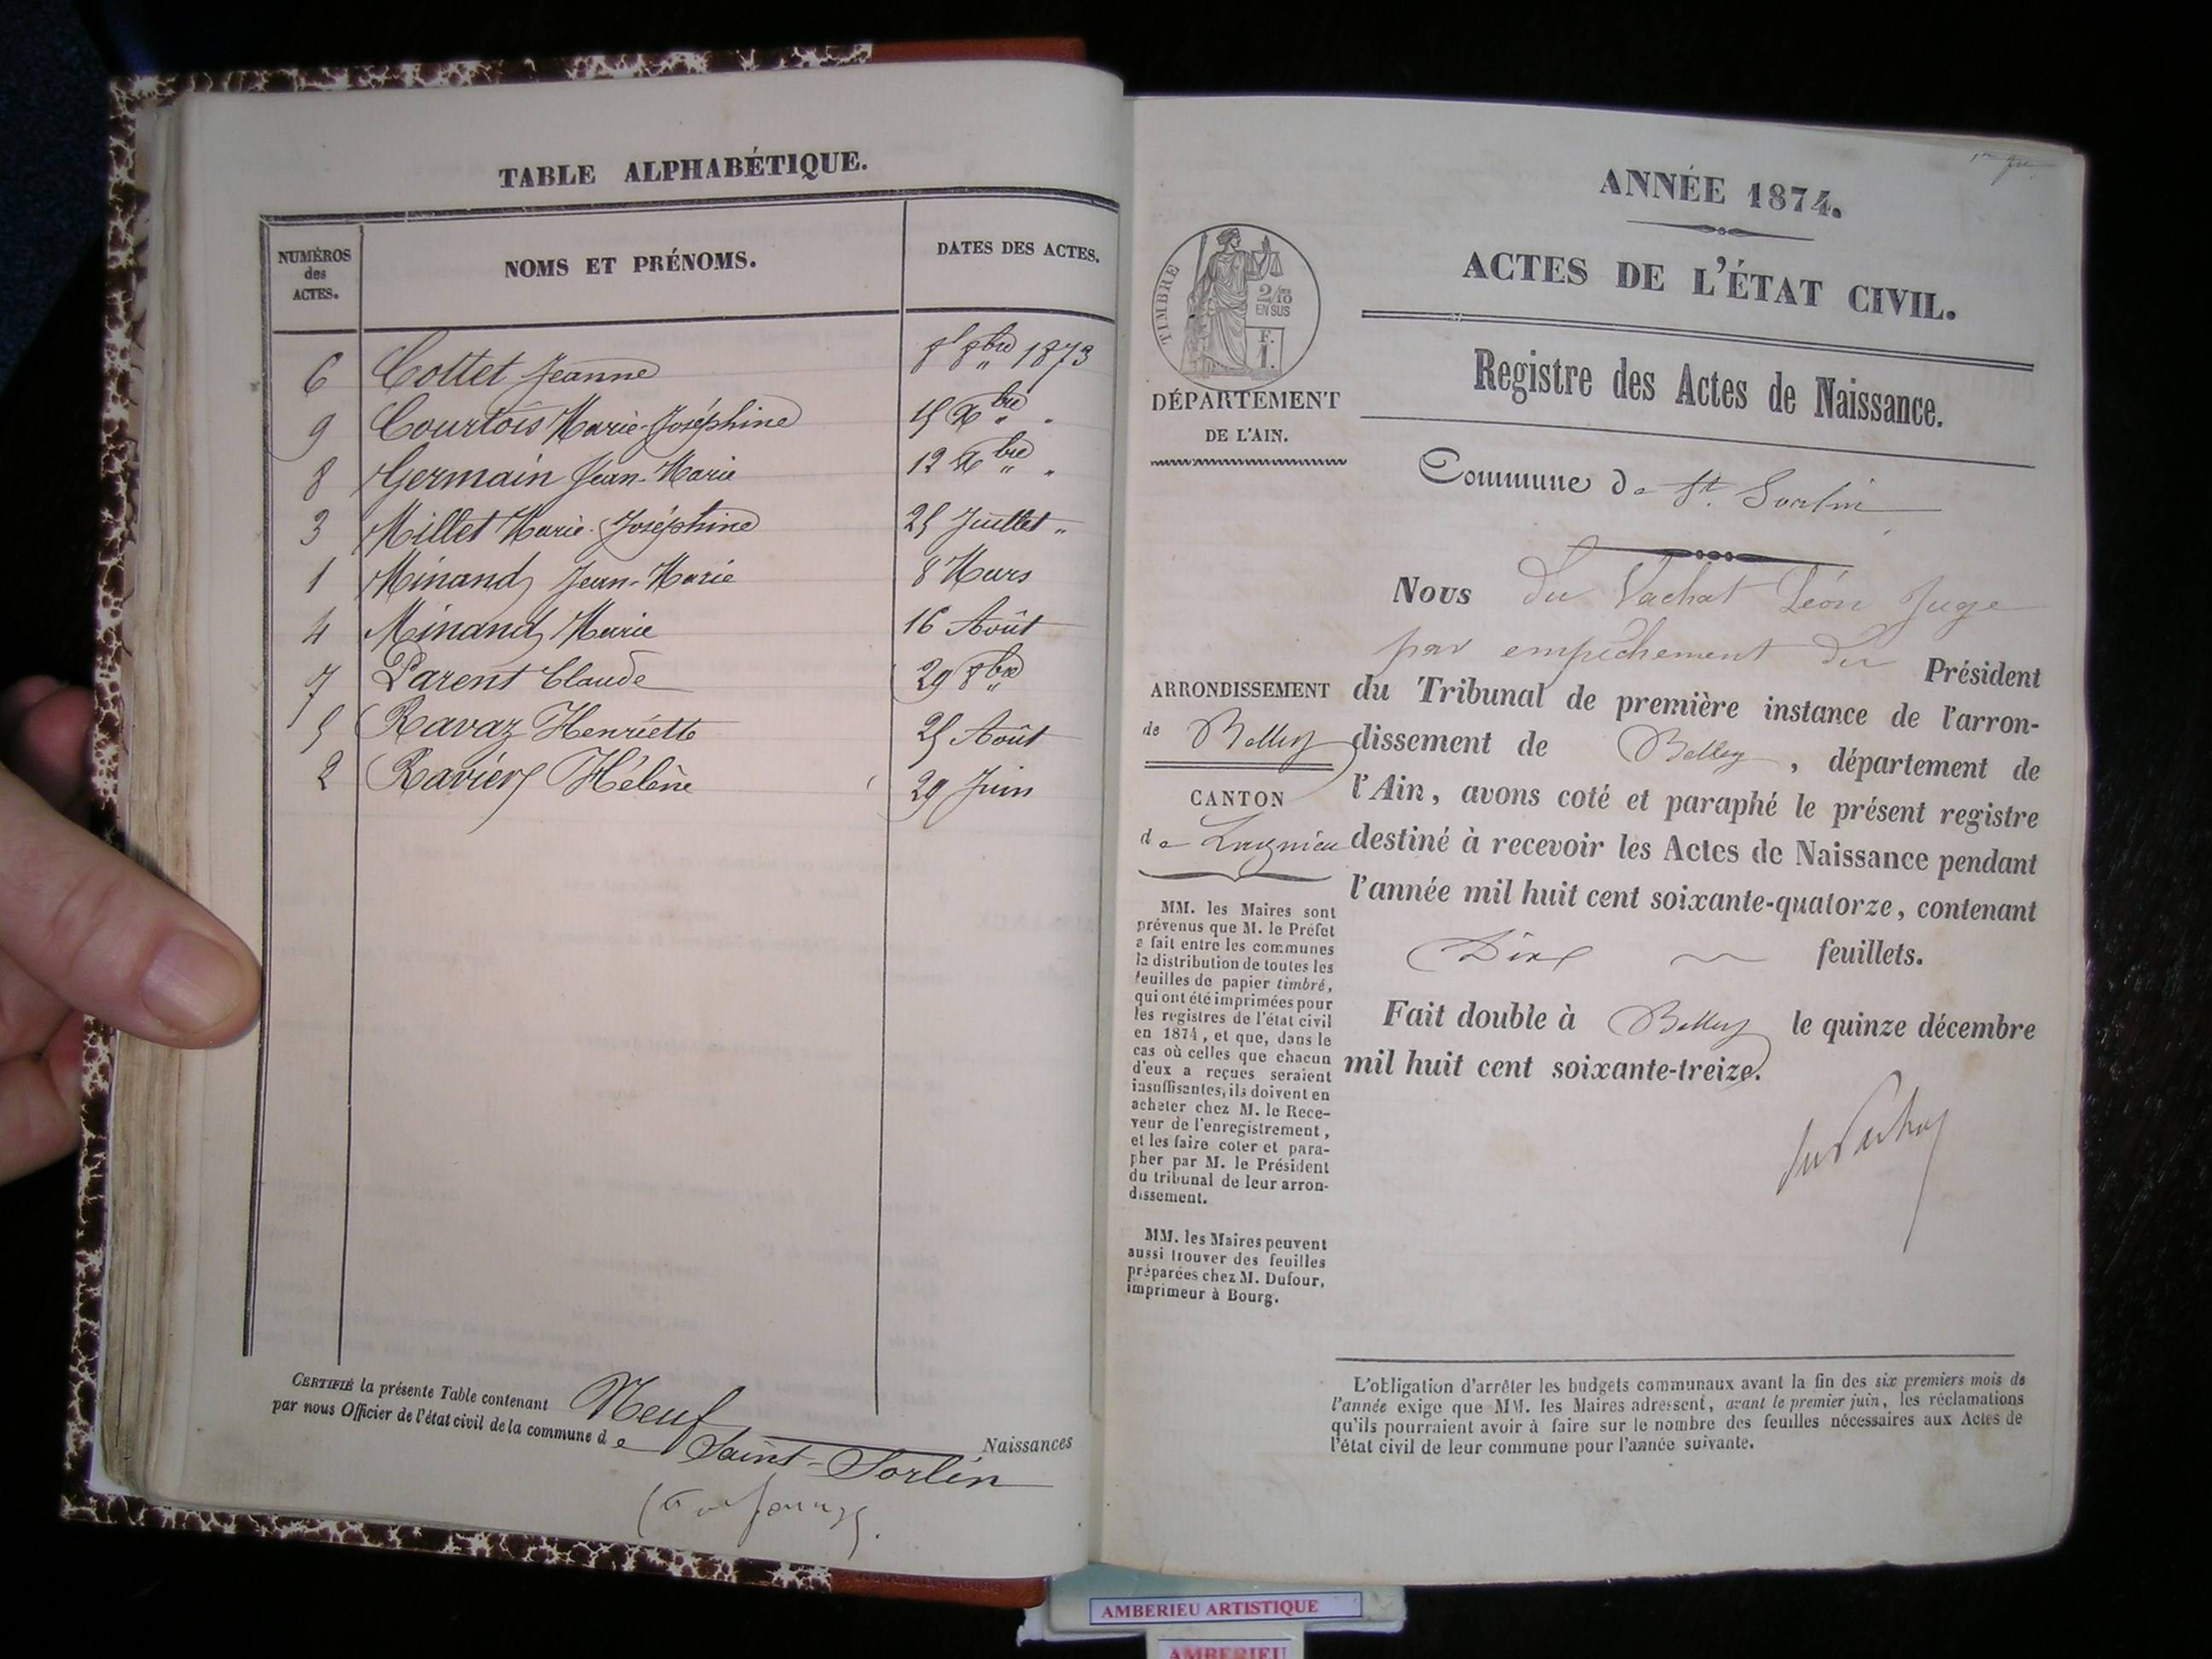 TABLE ALPHABÉTIQUE.
NUMÉROS des ACTES. NOMS ET PRÉNOMS. DATES DES ACTES.
6 Cottet Jeanne 8 8bre 1873
9 Courtois Marie-Joséphine 15 Xbre "
8 Germain Jean-Marie 12 Xbre "
3 Millet Marie-Joséphine 25 Juillet "
1 Minand Jean-Marie 8 Mars
4 Minand Marie 16 Août
7 Parent Claude 29 8bre
5 Ravaz Henriette 25 Août
2 Ravier Hélène 29 Juin
CERTIFIÉ la présente Table contenant Neuf Naissances
par nous Officier de l'état civil de la commune de Saint-Sorlin
ANNÉE 1874.
ACTES DE L'ÉTAT CIVIL.
Registre des Actes de Naissance.
TIMBRE
2/10
EN SUS
F.
1.
DÉPARTEMENT
DE L'AIN.
Commune de St. Sorlin
Nous Du Vachat Léon Juge
par empêchement du Président
du Tribunal de première instance de l'arron-
dissement de Belley, département de
l'Ain, avons coté et paraphé le présent registre
destiné à recevoir les Actes de Naissance pendant
l'année mil huit cent soixante-quatorze, contenant
Dix feuillets.
Fait double à Belley le quinze décembre
mil huit cent soixante-treize.
Du Vachat
ARRONDISSEMENT
de Belley
CANTON
de Lagnieu
MM. les Maires sont
prévenus que M. le Préfet
a fait entre les communes
la distribution de toutes les
feuilles de papier timbré,
qui ont été imprimées pour
les registres de l'état civil
en 1874, et que, dans le
cas où celles que chacun
d'eux a reçues seraient
insuffisantes, ils doivent en
acheter chez M. le Rece-
veur de l'enregistrement,
et les faire coter et para-
pher par M. le Président
du tribunal de leur arron-
dissement.
MM. les Maires peuvent
aussi trouver des feuilles
préparées chez M. Dufour,
imprimeur à Bourg.
L'obligation d'arrêter les budgets communaux avant la fin des six premiers mois de
l'année exige que MM. les Maires adressent, avant le premier juin, les réclamations
qu'ils pourraient avoir à faire sur le nombre des feuilles nécessaires aux Actes de
l'état civil de leur commune pour l'année suivante.
AMBERIEU ARTISTIQUE
AMBERIEU